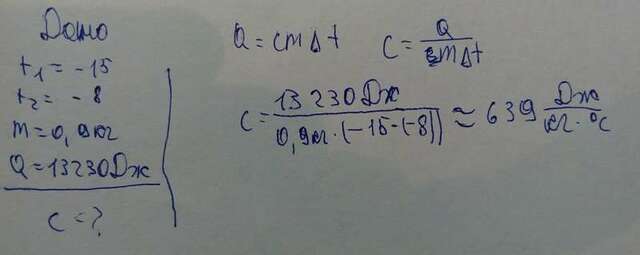 Дано
t₁ = -15
t₂ = -8
m = 0,9 кг
Q = 13230 Дж
c = ?
Q = cmΔt c = Q/mΔt
c = 13 230 Дж / 0,9 кг · (-15 - (-8)) ≈ 639 Дж/кг · °C